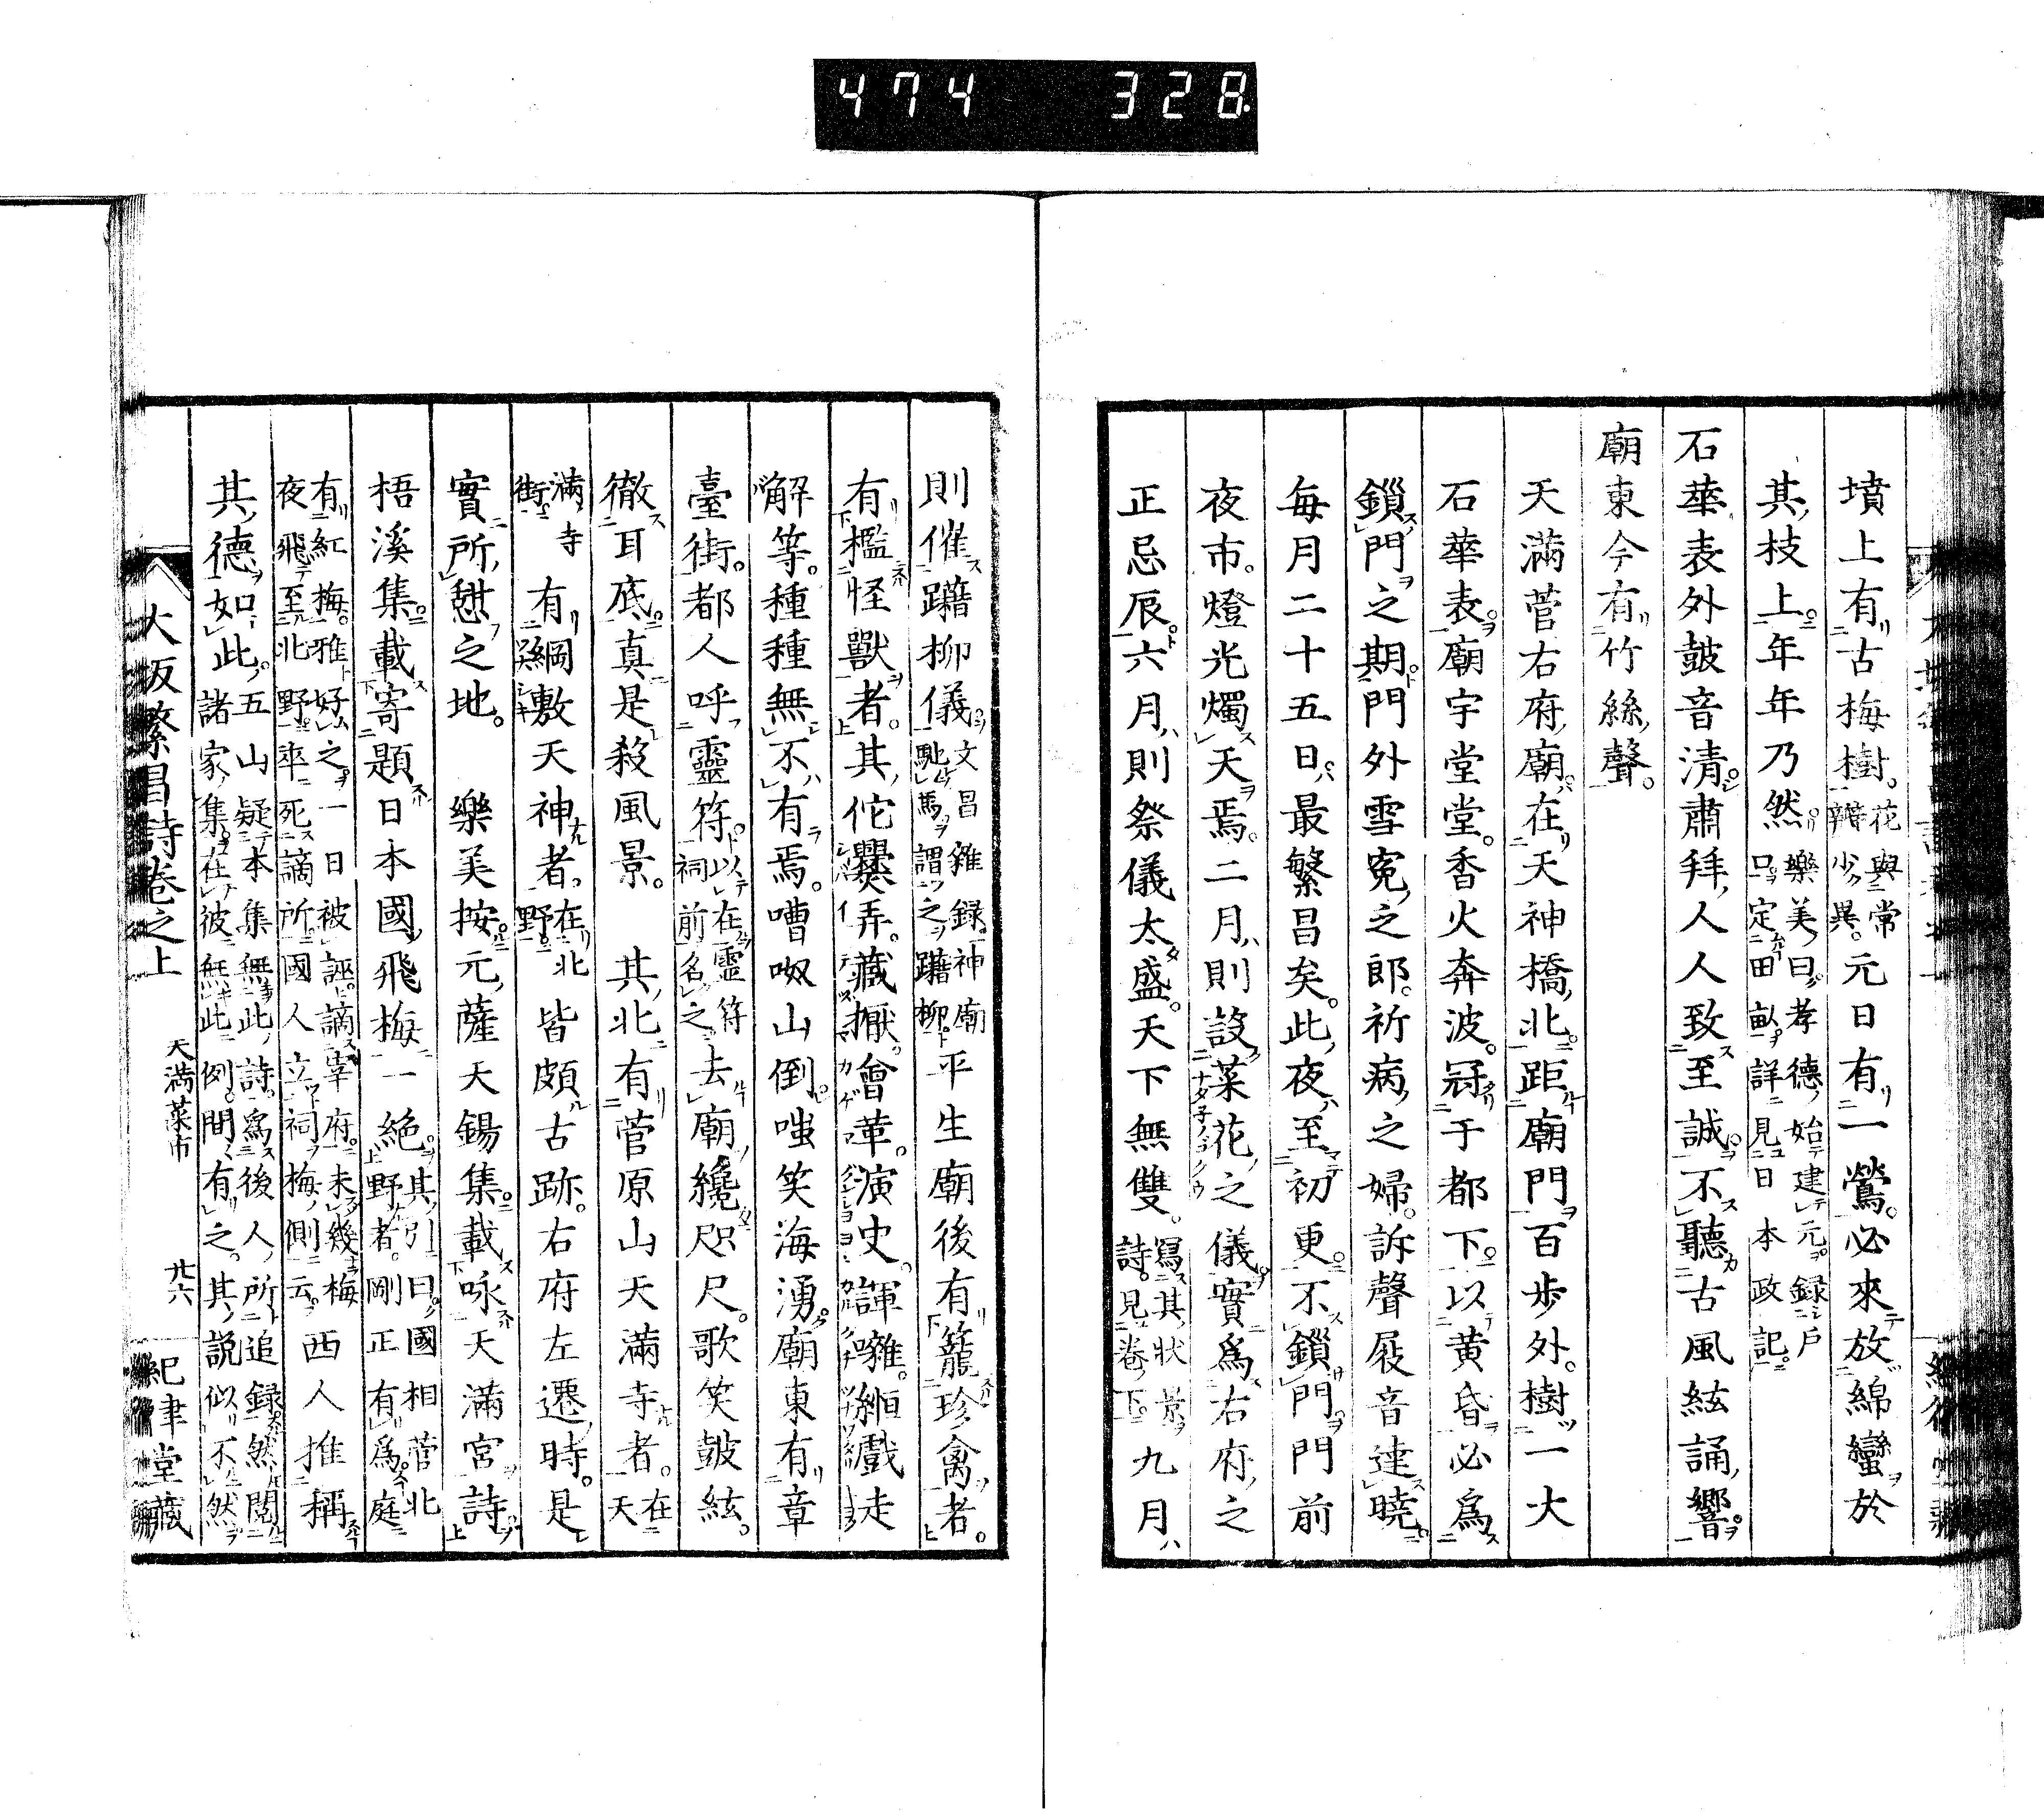 474 328
墳上有古梅樹。花與常瓣少異。元日有一鶯。必來放綿蠻於
其枝上。年年乃然。樂美曰孝德始建元錄戶口定田畝。詳見日本政記。
石華表外皷音清肅拜人人致至誠不聽古風絃誦響
廟東今有竹絲聲。
天滿菅右府廟在天神橋北距廟門百步外。樹一大
石華表。廟宇堂堂。香火奔波。冠于都下。以黃昏必爲
鎖門之期。門外雪寃之郎。祈病之婦。訴聲屐音達曉
每月二十五日最繁昌矣。此夜至初更不鎖門門前
夜市。燈光燭天焉。二月則設菜花之儀實爲右府之
正忌辰六月則祭儀太盛。天下無雙。寫其狀景詩。見卷下 九月
則催躤柳儀文昌雜錄。神廟馳馬。謂之躤柳 平生廟後有籠珍禽者。
有檻怪獸者。其佗爨弄。藏擫會革。演史。諢囃。緪戲走
解等。種種無不有焉。嘈呶山倒嗤笑海湧廟東有章
臺街。都人呼靈符。以在靈符祠前名之 去廟纔咫尺。歌笑皷絃。
徹耳底。真是殺風景。 其北有菅原山天滿寺者。在天
滿寺街 有綱敷天神者。在北野 皆頗古跡。右府左遷時。是
實所憇之地。 樂美按元薩天錫集載咏天滿宮詩
梧溪集載寄題日本國飛梅一絕其引曰。國相菅北野者。剛正有爲庭
有紅梅。雅好之一日被誣謫宰府。未幾梅夜飛至北野卒死謫所國人立祠梅側云。 西人推稱
其德如此。五山諸家集在彼無此例。間有之。其說似不然 疑本集無此詩。爲後人所追錄然閱
大坂繁昌詩卷之上 天滿菜市 廿六 紀聿堂藏